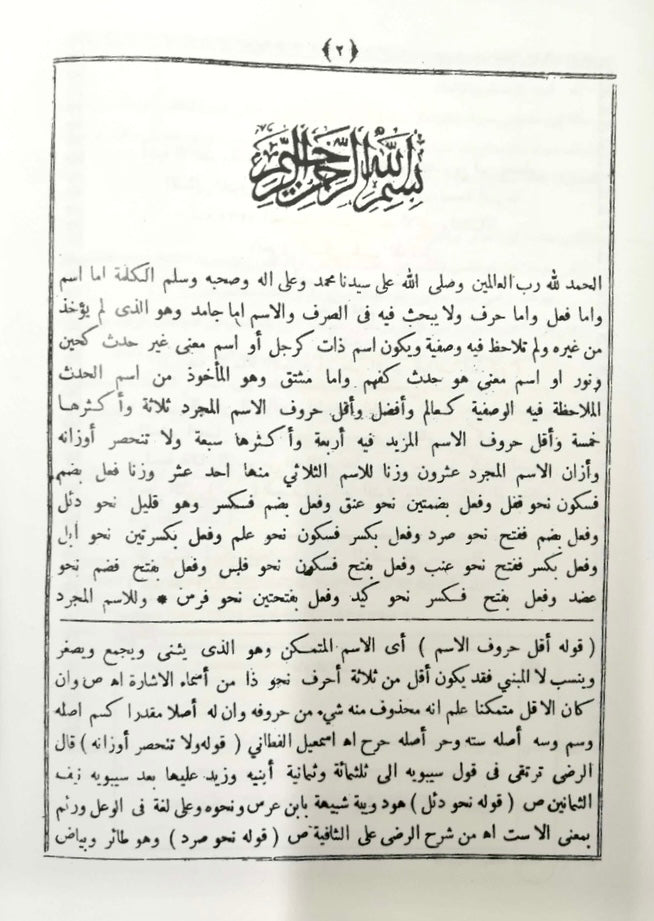 ﴿ ٢ ﴾
بسم الله الرحمن الرحيم
الحمد لله رب العالمين وصلى الله على سيدنا محمد وعلى اله وصحبه وسلم الكلمة اما اسم
واما فعل واما حرف ولا يبحث فيه فى الصرف والاسم اما جامد وهو الذى لم يؤخذ
من غيره ولم تلاحظ فيه وصفية ويكون اسم ذات كرجل أو اسم معنى غير حدث كحين
ونور او اسم معنى هو حدث كفهم واما مشتق وهو المأخوذ من اسم الحدث
الملاحظة فيه الوصفية كعالم وأفضل وأقل حروف الاسم المجرد ثلاثة وأكثرها
خمسة وأقل حروف الاسم المزيد فيه أربعة وأكثرها سبعة ولا تنحصر أوزانه
وأزان الاسم المجرد عشرون وزنا للاسم الثلاثي منها احد عشر وزنا فعل بضم
فسكون نحو قفل وفعل بضمتين نحو عنق وفعل بضم فكسر وهو قليل نحو دئل
وفعل بضم ففتح نحو صرد وفعل بكسر فسكون نحو علم وفعل بكسرتين نحو أبل
وفعل بكسر ففتح نحو عنب وفعل بفتح فسكون نحو فلس وفعل بفتح فضم نحو
عضد وفعل بفتح فكسر نحو كبد وفعل بفتحتين نحو فرس * وللاسم المجرد
( قوله أقل حروف الاسم ) أى الاسم المتمكن وهو الذى يثنى ويجمع ويصغر
وينسب لا المبني فقد يكون أقل من ثلاثة أحرف نحو ذا من أسماء الاشارة اه ص وان
كان الاقل متمكنا علم انه محذوف منه شيء من حروفه وان له أصلا مقدرا كسم اصله
وسم وسه أصله سته وحر أصله حرح اه اسمعيل القطاني ( قوله ولا تنحصر أوزانه ) قال
الرضى ترتقى فى قول سيبويه الى ثلثمائة وثمانية أبنيه وزيد عليها بعد سيبويه نيف
الثمانين ص ( قوله نحو دئل ) هو دويبة شبيهة بابن عرس ونحوه وعلى لغة فى الوعل ورئم
بمعنى الاست اه من شرح الرضى على الشافية ص ( قوله نحو صرد ) وهو طائر وبياض